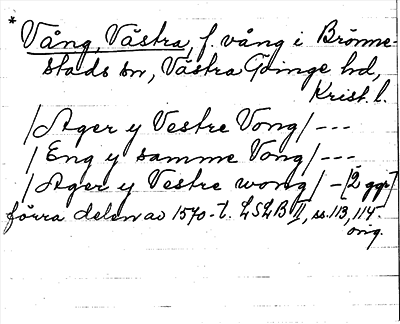 * Vång, Västra, f. vång i Brönne-
stads sn, Västra Göinge hd,
Krist. l.
/ Ager y Vestre Vong / ---
/ Eng y samme Vong / ---
/ Ager y Vestre wong / - [2 ggr]
förra delen av 1570-t. LSLB II, ss. 113, 114.
orig.